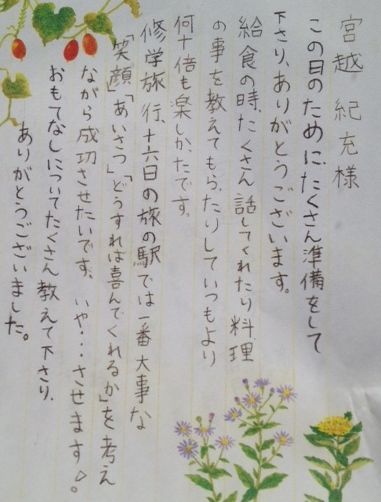 宮越 紀充様
この日のために、たくさん準備をして
下さり、ありがとうございます。
給食の時、たくさん話してくれたり料理
の事を教えてもらったりしていつもより
何十倍も楽しかったです。
修学旅行、十六日の旅の駅では一番大事な
「笑顔」「あいさつ」「どうすれば喜んでくれるか」を考え
ながら成功させたいです。いや・・・させます。
おもてなしについてたくさん教えて下さり、
ありがとうございました。